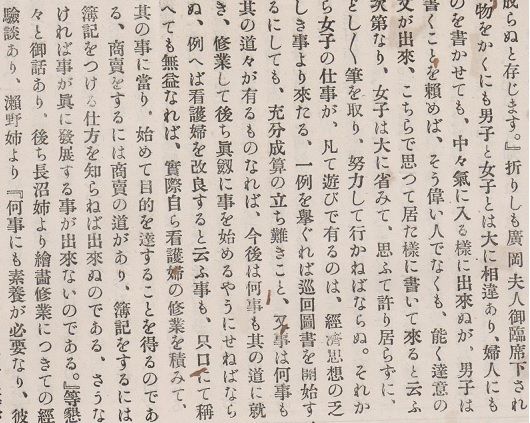 成らぬと存じます。』折りしも廣岡夫人御臨席下され
物をかくにも男子と女子とは大に相違あり、婦人にも
のを書かせても、中々氣に入る樣に出來ぬが、男子は
書くことを頼めば、そう偉い人でなくも、能く達意の
文が出來、こちらで思つて居た樣に書いて來ると云ふ
次第なり、女子は大に省みて、思ふて許り居らずに、
とし〱筆を取り、努力して行かねばならぬ。それか
ら女子の仕事が、凡て遊びで有るのは、經濟思想の乏
しき事より來たる、一例を擧ぐれば巡回圖書を開始す
るにしても、充分成算の立ち難きこと、又事は何事も
其の道々が有るものなれば、今後は何事も其の道に就
き、修業して後ち眞劔に事を始めるやうにせねばなら
ぬ、例へば看護婦を改良すると云ふ事も、只口にて稱
へても無益なれば、實際自ら看護婦の修業を積みて、
其の事に當り、始めて目的を達することを得るのであ
る、商賣をするには商賣の道があり、簿記をするには
簿記をつける仕方を知らねば出來ぬのである、さうな
ければ事が眞に發展する事が出來ないのである。』等懇
々と御話あり、後ち長沼姉より繪畫修業につきての經
驗談あり、瀨野姉より『何事にも素養が必要なり、彼